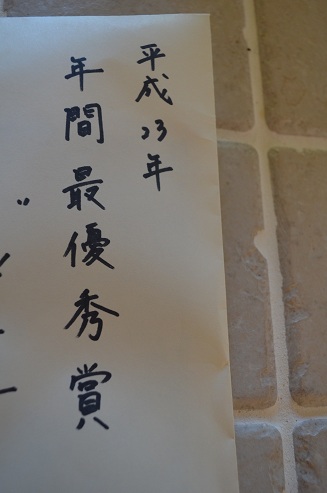 平成23年
年間最優秀賞